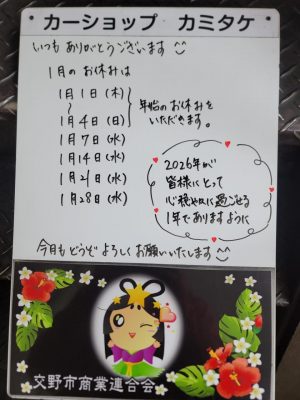 カーショップ カミタケ
いつも ありがとうございます
1月の お休みは
1月 1日 (木)
〜
1月 4日 (日)
年始のお休みを
いただきます。
1月 7日 (水)
1月 14日 (水)
1月 21日 (水)
1月 28日 (水)
2026年が
皆様にとって
心穏やかに過ごせる
1年でありますように
今月も どうぞ よろしく お願いいたします
交野市商業連合会